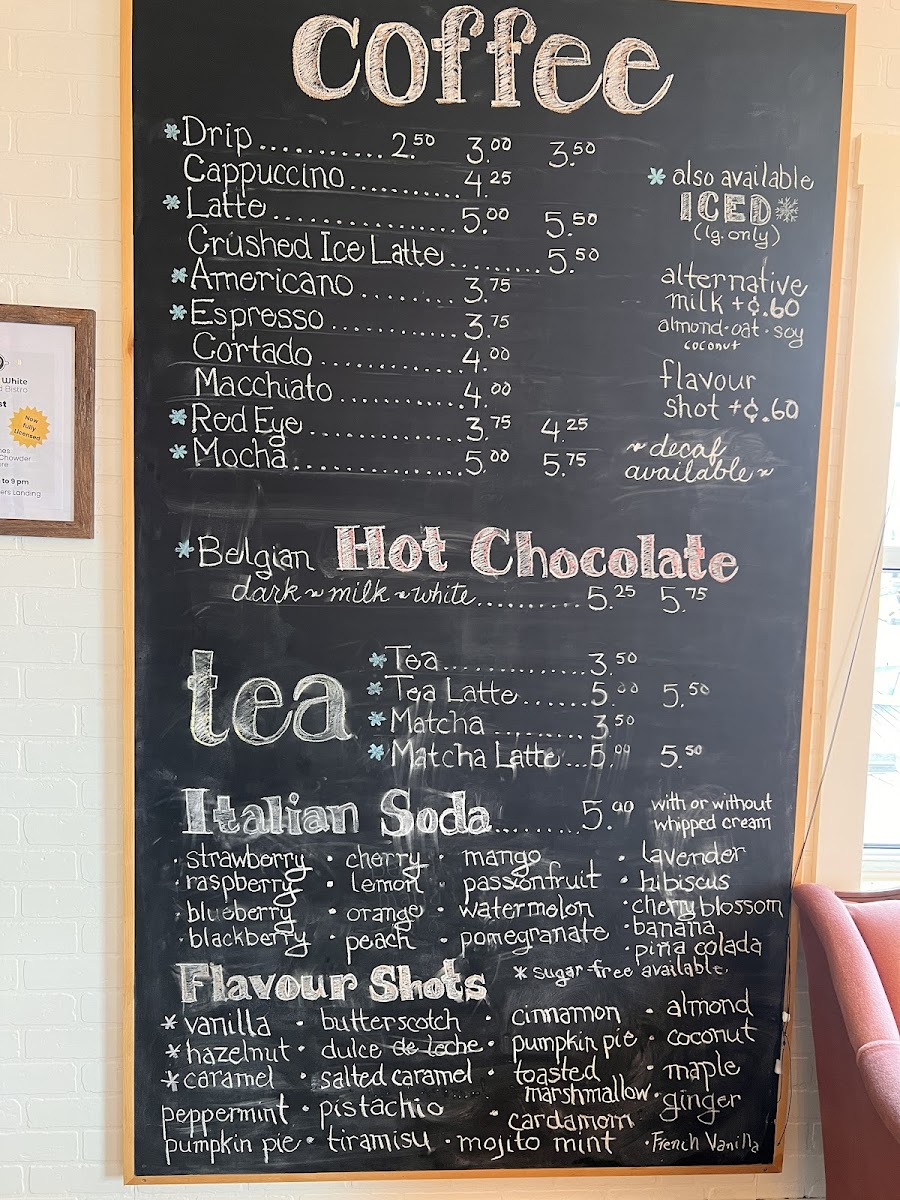 coffee
*Drip............ 2.50 3.00 3.50
Cappuccino...........4.25
*Latte....................5.00 5.50
Crushed Ice Latte.........5.50
*Americano..........3.75
*Espresso.............3.75
Cortado...............4.00
Macchiato............4.00
*Red Eye...............3.75 4.25
*Mocha.................5.00 5.75
* also available
ICED
(lg. only)
alternative
milk +¢.60
almond·oat·soy
coconut
flavour
shot +¢.60
~decaf
available~
*Belgian Hot Chocolate
dark~milk~white..........5.25 5.75
tea
*Tea...............3.50
*Tea Latte.......5.00 5.50
*Matcha..........3.50
*Matcha Latte...5.00 5.50
Italian Soda.........5.00 with or without
whipped cream
· strawberry · cherry · mango · lavender
· raspberry · lemon · passionfruit · hibiscus
· blueberry · orange · watermelon · cherry blossom
· blackberry · peach · pomegranate · banana
piña colada
* sugar-free available.
Flavour Shots
* vanilla · butterscotch · cinnamon · almond
* hazelnut · dulce de leche · pumpkin pie · coconut
* caramel · salted caramel · toasted marshmallow · maple
peppermint · pistachio · cardamom · ginger
pumpkin pie · tiramisu · mojito mint · French Vanilla
White
Bistro
Now
fully
Licensed
Chowder
to 9 pm
ers Landing